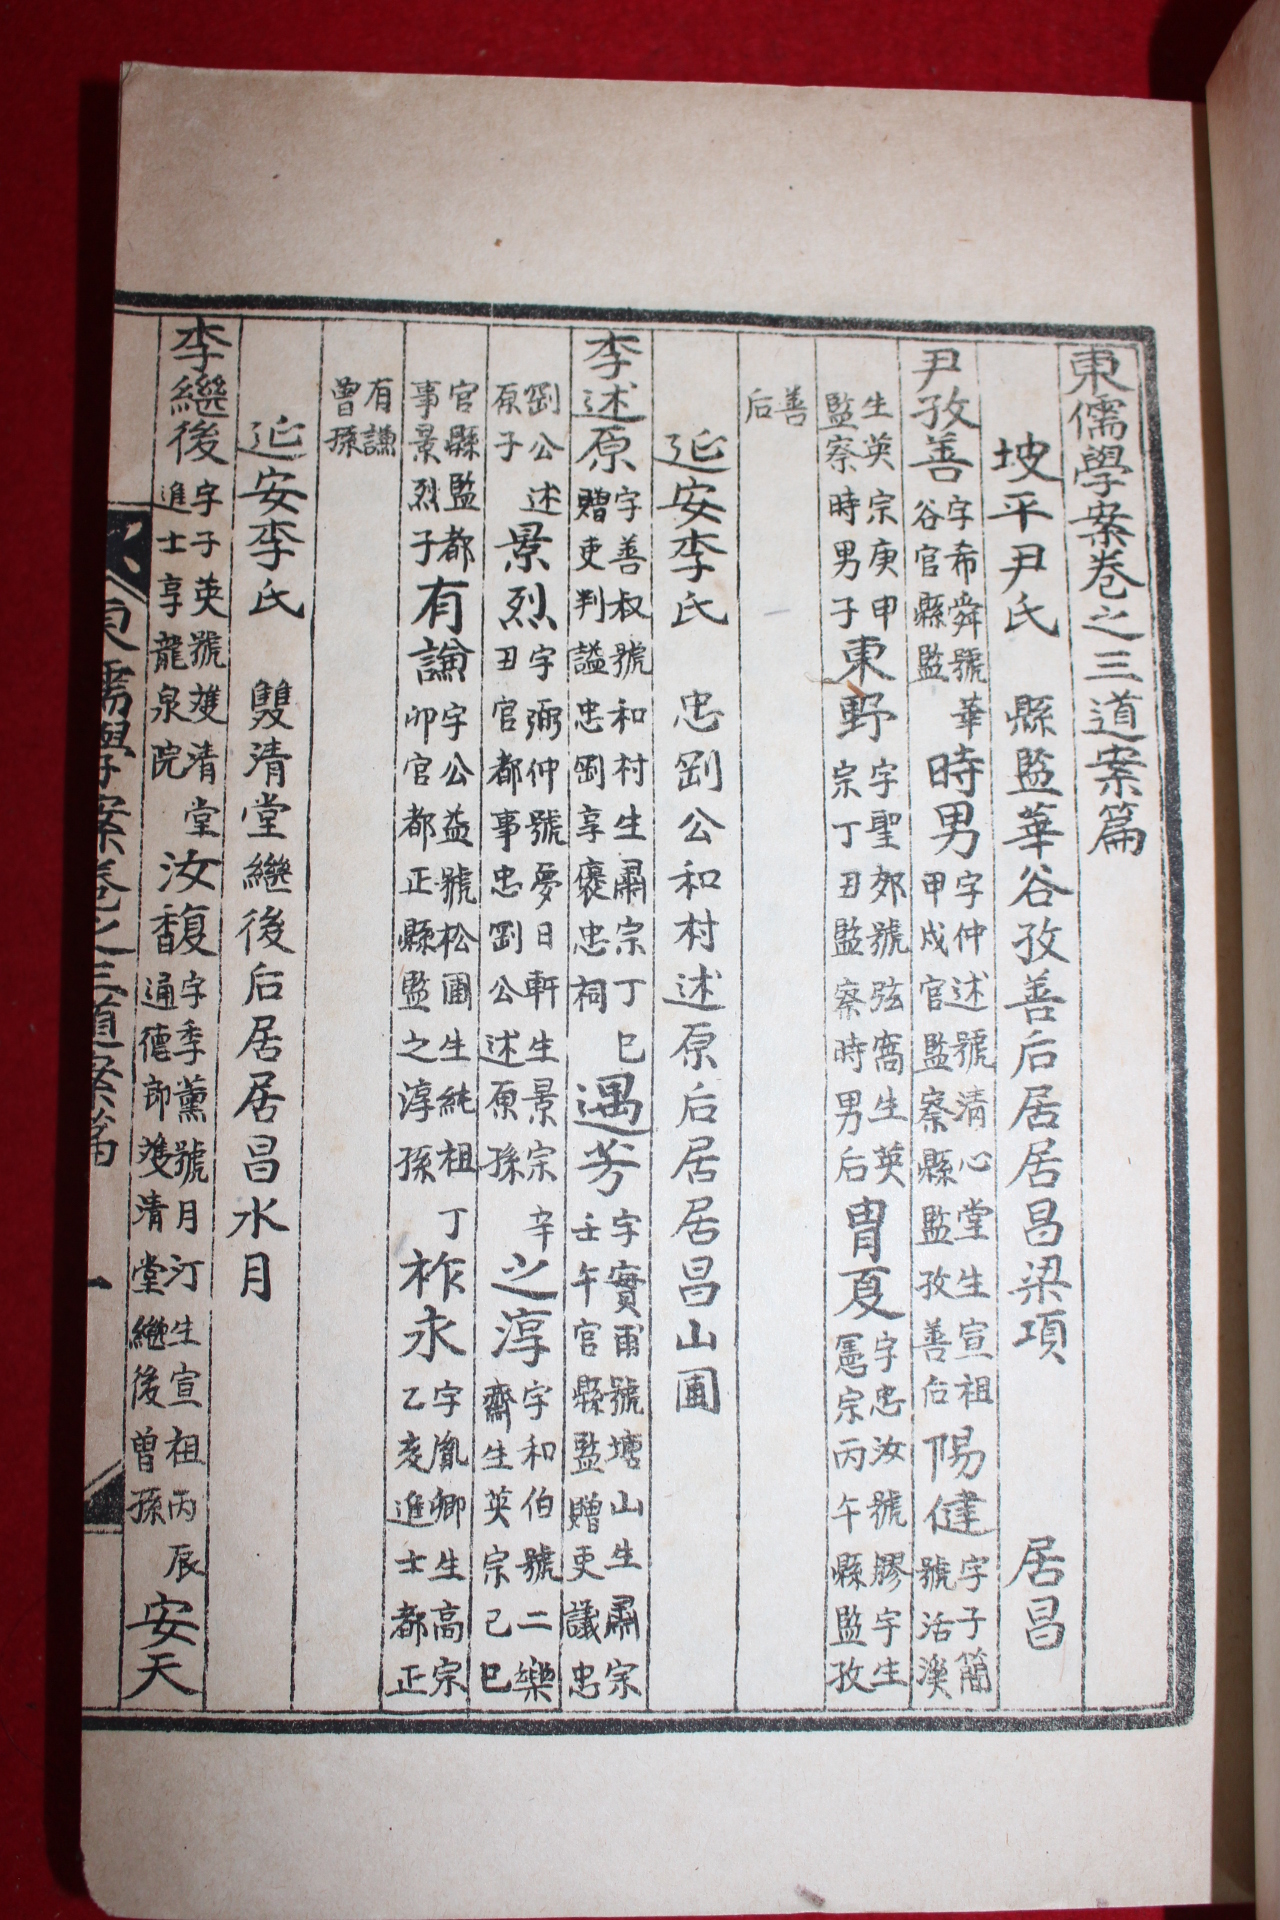 東儒學案卷之三道案篇
坡平尹氏　縣監華谷孜善后居居昌梁項　居昌
尹孜善字希舜號華谷官縣監　時男字仲述號清心堂生宣祖甲戍官監察縣監孜善后　陽健字子簡號活溪
生英宗庚申監察時男子　東野字聖郊號弦窩生英宗丁丑監察時男后　冑夏字忠汝號膠宇生憲宗丙午縣監孜
善后
延安李氏　忠剛公和村述原后居居昌山圃
李述原字善叔號和村生肅宗丁巳贈吏判謚忠剛享褒忠祠　遇芳字實甫號塘山生肅宗壬午官縣監贈吏議忠
剛公述原子　景烈字弼仲號夢日軒生景宗辛丑官都事忠剛公述原孫　之淳字和伯號二樂齋生英宗己巳
官縣監都事景烈子　有謙字公益號松圃生純祖丁卯官都正縣監之淳孫　祚永字胤卿生高宗乙亥進士都正
有謙曾孫
延安李氏　雙清堂繼後后居居昌水月
李繼後字子英號雙清堂進士享龍泉院　汝馥字季薰號月汀生宣祖丙辰通德郎雙清堂繼後曾孫　安天
東儒學案卷之三道案篇　一